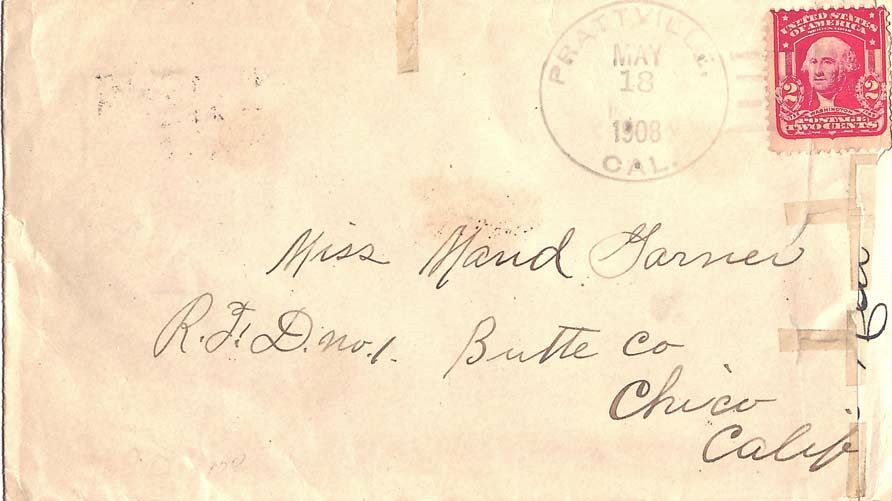 PRATTVILLE,
MAY
18
1908
CAL.
UNITED STATES
OF AMERICA
SERIES 1902
2 2
WASHINGTON
POSTAGE
TWO CENTS
Miss Maud Garner
R.F.D. no. 1. Butte Co
Chico
Calif